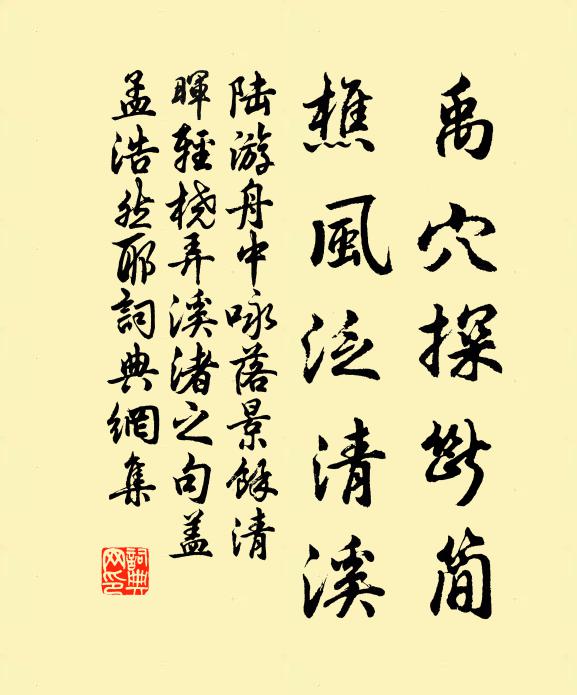 禹穴探斷简
樵風泛清溪
陆游舟中咏落景餘清
暉輕桡弄溪渚之句盖
孟浩然耶詞典網集
詞典网印